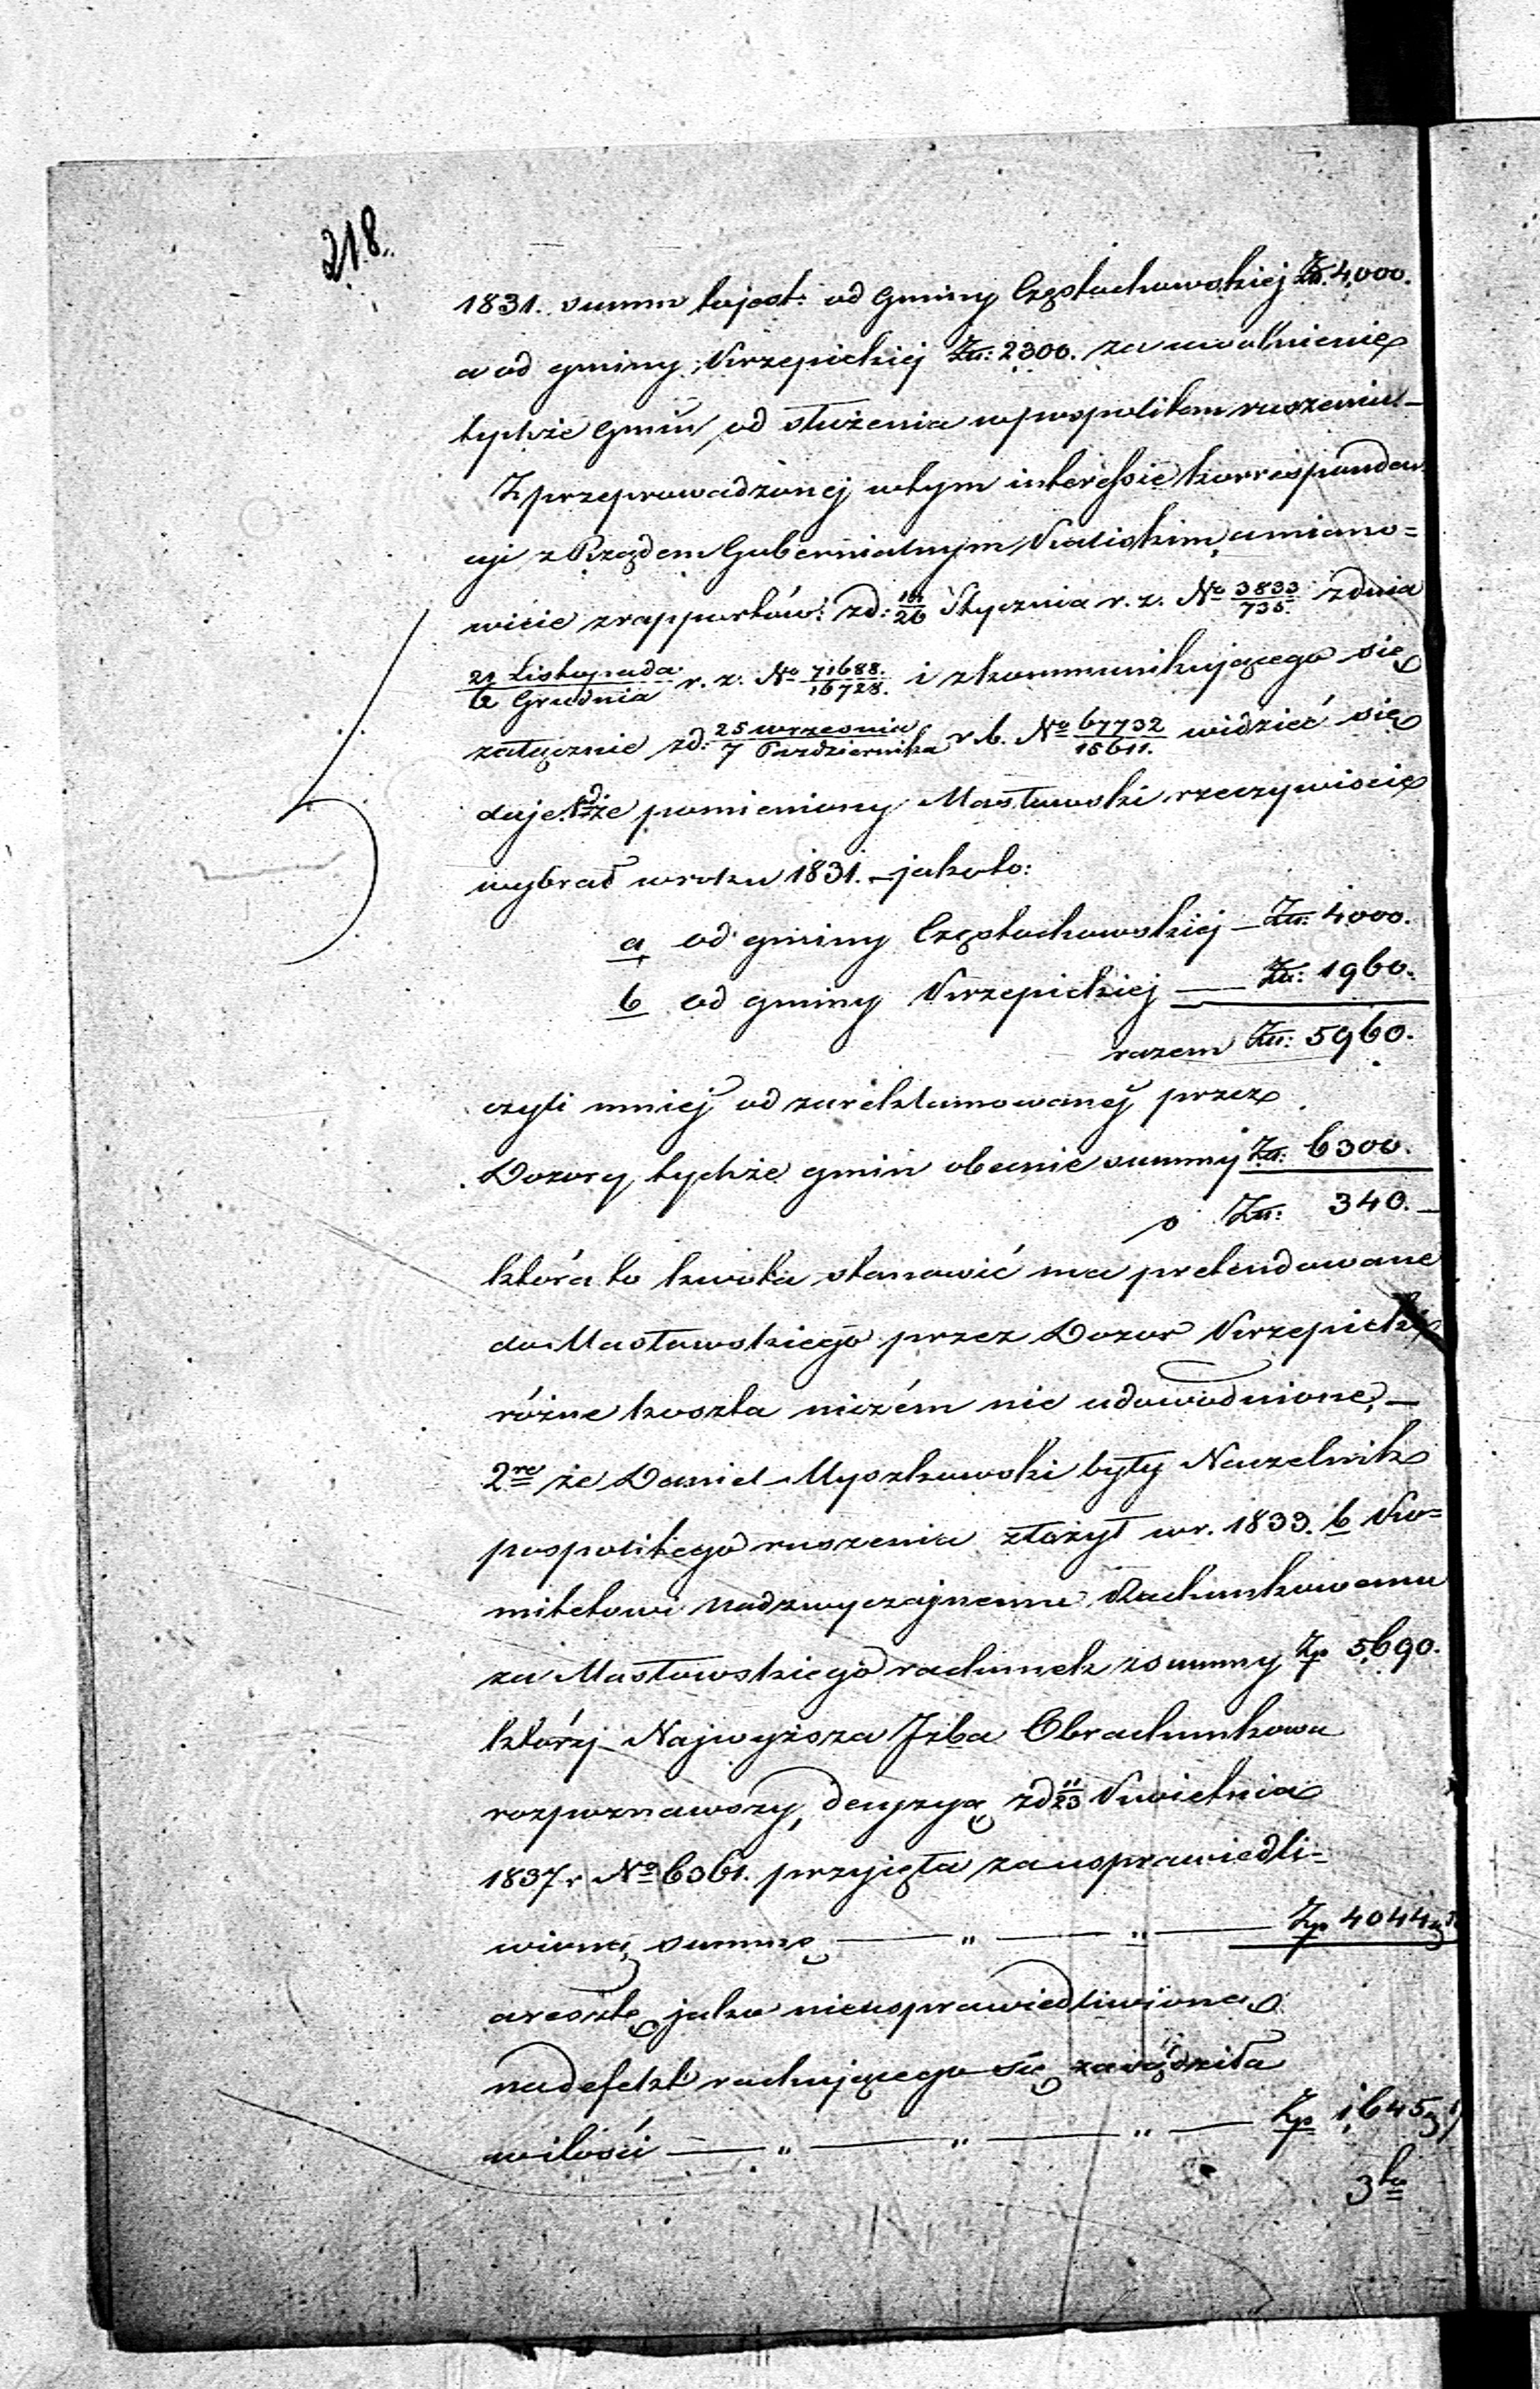 218.
1831. summ tojest: od Gminy Częstochowskiej Zł. 4,000.
a od gminy Krzepickiej Zł: 2300. za uwolnienie
tychże Gmin od służenia w pospolitem ruszeniu. —
Z przeprowadzonej wtym interessie korrespondencji
z Rządem Gubernialnym Kaliskim, amiano=
wicie z rapportów: zd: 14/26 Stycznia r. z. No 3833/735. zdnia
21 Listopada/6 Grudnia r. z. No 71688./16728. i zkommunikującego się
załącznie zd: 25 września/7 Października r. b. No 67732/15611. widzieć się
daje. że pomieniony Masłowski rzeczywiście
wybrał w roku 1831. – jakoto:
a od gminy Częstochowskiej — Zł: 4000.
b od gminy Krzepickiej — Zł: 1960.
razem Zł: 5960.
czyli mniej od zareklamowanej przez
Dozory tychże gmin obecnie summy Zł: 6300.
o Zł: 340. —
która to kwota stanowić ma pretendowane
do Masłowskiego przez Dozor Krzepicki
różne koszta niczém nie udowodnione, —
2re że Daniel Myszkowski były Naczelnik
pospolitego ruszenia złożył w r. 1833. b Ko=
mitetowi Nadzwyczajnemu Rachunkowemu
za Masłowskiego rachunek z summy Zp 5,690.
któréj Najwyższa Izba Obrachunkowa
rozpoznawszy, decyzyą zd 11/23 Kwietnia
1837 r No 6361. przyjęła za usprawiedli=
wioną summę — „ — „ — Zp 4044
a resztę jako nieusprawiedliwioną
na defekt rachującego się zawiodziła
w ilości — „ — „ — „ — Zp 1,645
3tio